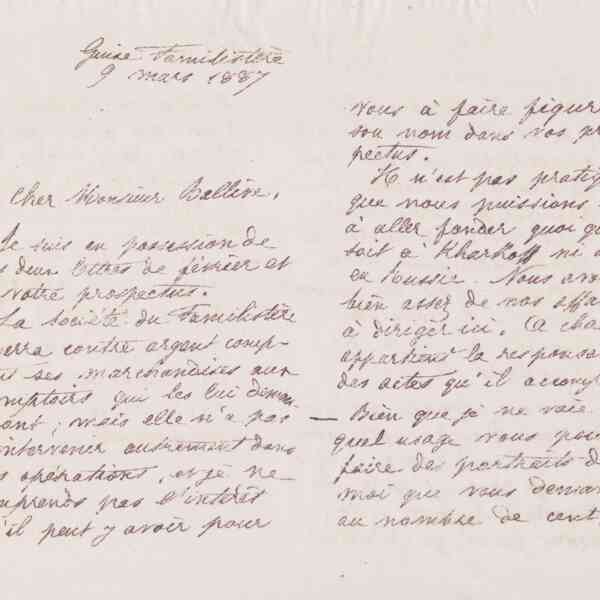 Guise Familistère
9 mars 1887
Cher Monsieur Balline,
Je suis en possession de
s deux lettres de février et
votre prospectus.
La Société du Familistère
erra contre argent comp-
ses marchandises aux
mptoirs qui les lui deman
ont; mais elle n'a pas
intervenir autrement dans
s opérations, et je ne
mprends pas l'intérêt
'il peut y avoir pour
vous à faire figur
son nom dans vos pr
pectus.
Il n'est pas pratiq
que nous puissions
à aller fonder quoi qu
soit à Kharkoff ni
en Russie. Nous avo
bien assez de nos affai
à diriger ici. A cha
appartient la responsa
des actes qu'il accomp
— Bien que je ne voie
quel usage vous pou
faire des portraits d
moi que vous deman
au nombre de cent,